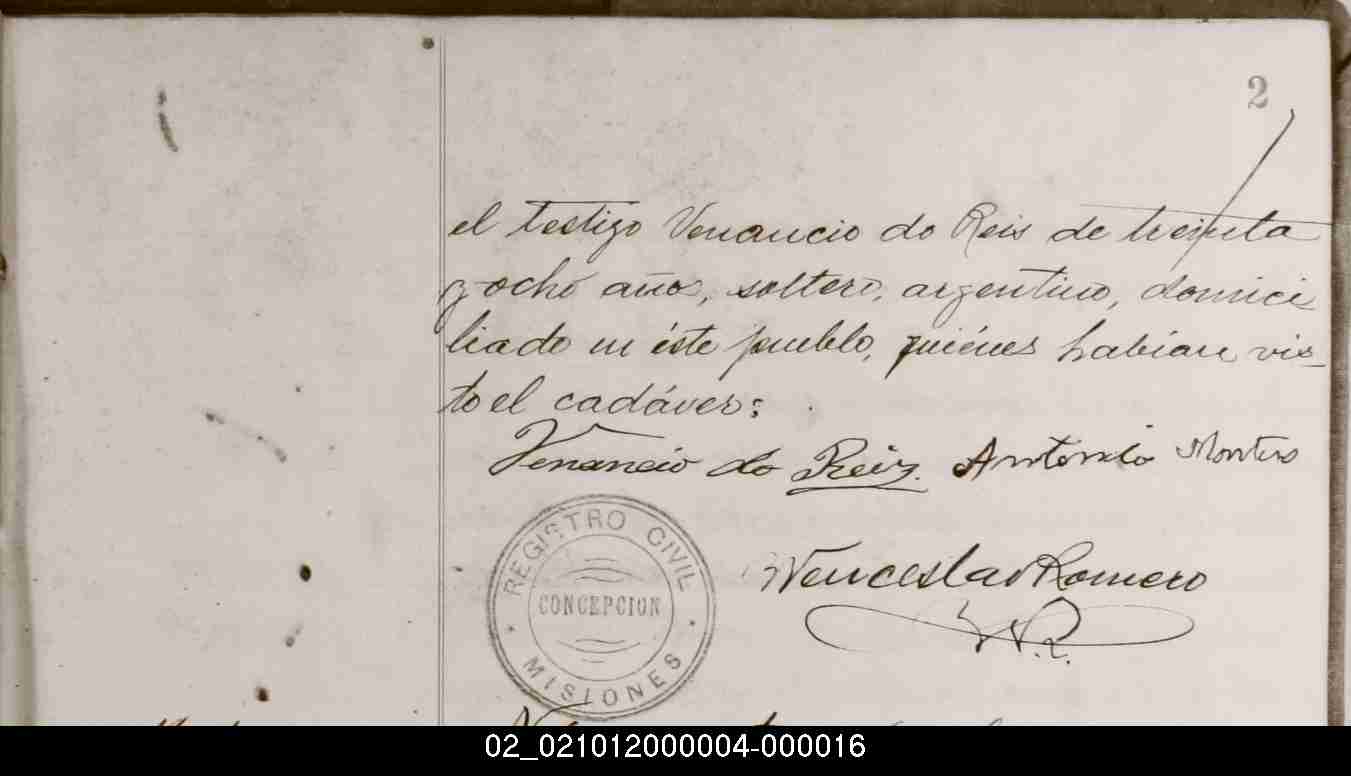 2
el testigo Venancio do Reis de treinta
y ocho años, soltero, argentino, domici
liado en éste pueblo, quiénes habían vis_
to el cadáver:
Venancio do Reiz. Antonio Montero
Wenceslao Romero
REGISTRO CIVIL
CONCEPCION
MISIONES
02_021012000004-000016